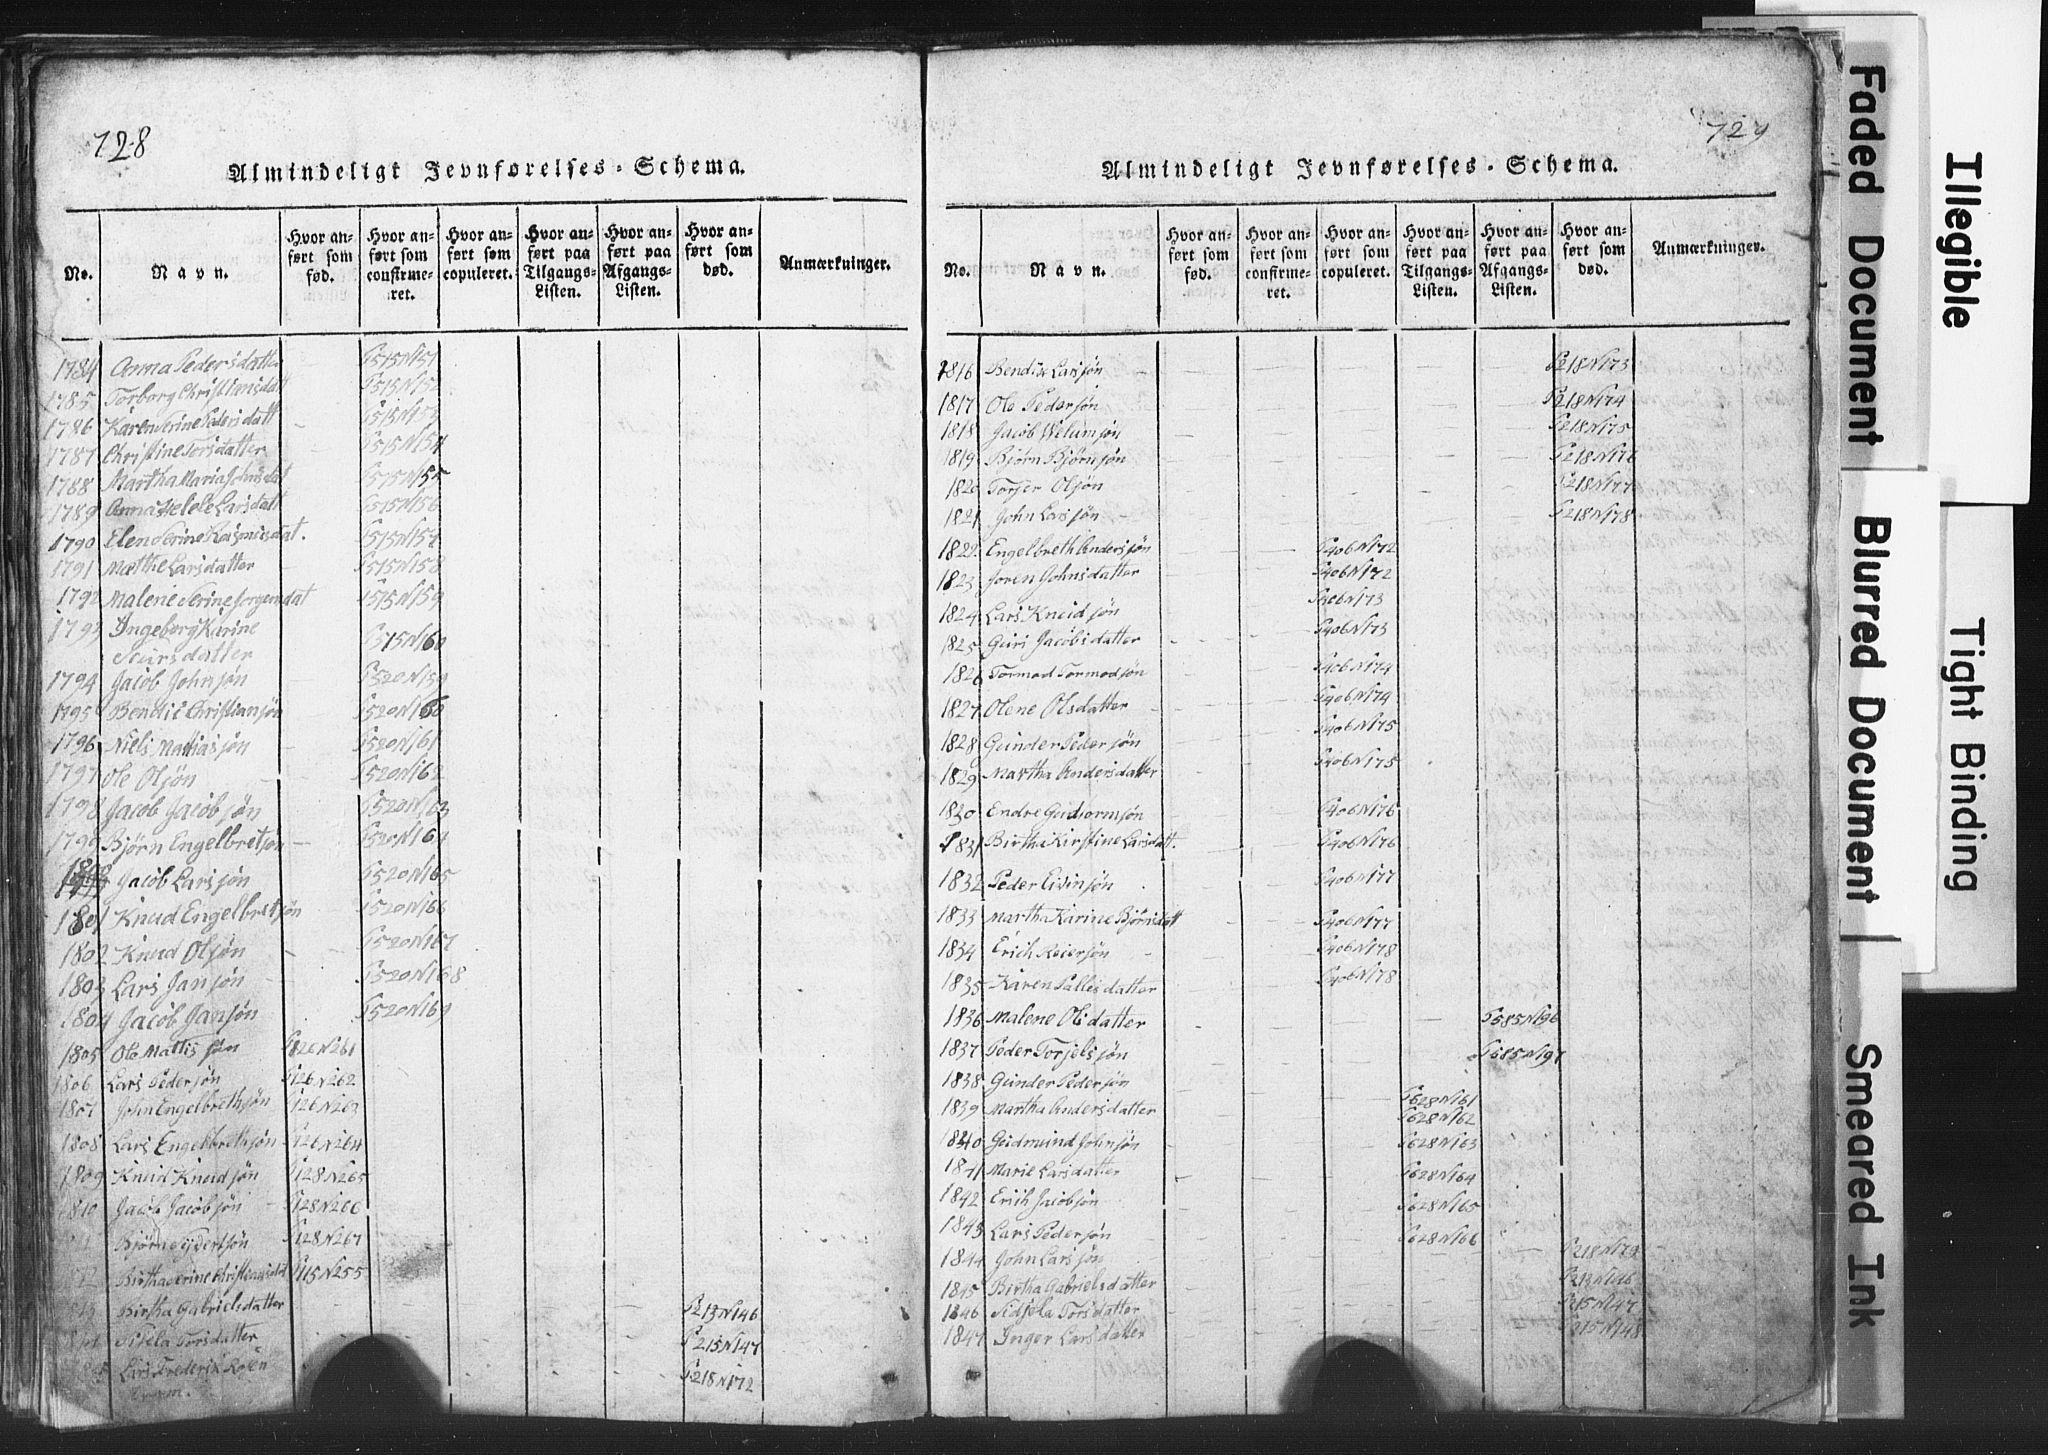 728
Almindeligt Jevnførelses-Schema.
No. Navn. Hvor anført som fød. Hvor anført som confirmeret. Hvor anført som copuleret. Hvor anført paa Tilgangs-Listen. Hvor anført paa Afgangs-Listen. Hvor anført som død. Anmærkninger.
1784 Anna Pedersdatter P515N151
1785 Torborg Christiansdatt P515N152
1786 Karen Serine Pedersdatt P515N153
1787 Christine Torsdatter P515N154
1788 Martha Maria Johnsdat P515N155
1789 Anna Helele Larsdatt P515N156
1790 Elen Serine Rasmusdat. P515N157
1791 Mæthe Larsdatter P515N158
1792 Malene Serine Jorgensdat P515N159
1793 Ingeborg Karine
Siursdatter P515N160
1794 Jacob Johnsøn P520N159
1795 Bendic Christiansøn P520N160
1796 Niels Mattiassøn P520N161
1797 Ole Olsøn P520N162
1798 Jacob Jacobsøn P520N163
1799 Bjørn Engelbretsøn P520N164
1800 Jacob Larssøn P520N165
1801 Knud Engelbretsøn P520N166
1802 Knud Olsøn P520N167
1803 Lars Jansøn P520N168
1804 Jacob Jansøn P520N169
1805 Ole Mattissøn P126N261
1806 Lars Pedersøn P126N262
1807 John Engelbrethsøn P126N263
1808 Lars Engelbrethsøn P126N264
1809 Knud Knudsøn P128N265
1810 Jacob Jacobsøn P128N266
Bjørn Sijvertsøn P128N267
Birtha Serine Christensdat P115N255
Birtha Gabrielsdatter P213N146
Sisela Torsdatter P215N147
Lars Frederik P218N172
729
Almindeligt Jevnførelses-Schema.
No. Navn. Hvor anført som fød. Hvor anført som confirmeret. Hvor anført som copuleret. Hvor anført paa Tilgangs-Listen. Hvor anført paa Afgangs-Listen. Hvor anført som død. Anmærkninger.
1816 Bendix Larsøn P218N173
1817 Ole Pedersøn P218N174
1818 Jacob Wilumsøn P218N175
1819 Bjørn Bjørnsøn P218N176
1820 Torjer Olsøn P218N177
1821 John Larssøn P218N178
1822 Engelbreth Andersøn P406N172
1823 Joren Johnsdatter P406N172
1824 Lars Knudsøn P406N173
1825 Guri Jacobsdatter P406N173
1826 Tormod Tormodsøn P406N174
1827 Olene Olsdatter P406N174
1828 Gunder Pedersøn P406N175
1829 Martha Andersdatter P406N175
1830 Endre Gudormsøn P406N176
1831 Birtha Kirstine Larsdatt. P406N176
1832 Peder Eivinsøn P406N177
1833 Martha Karine Bjørnsdatt P406N177
1834 Erich Reiersøn P406N178
1835 Karen Pallesdatter P406N178
1836 Malene Olsdatter P585N196
1837 Peder Torjelssøn P585N197
1838 Gunder Pedersøn P628N161
1839 Martha Andersdatter P628N162
1840 Gudmund Johnsøn P628N163
1841 Marie Larsdatter P628N164
1842 Erich Jacobsøn P628N165
1843 Lars Pedersøn P628N166
1844 John Larssøn P218N179
1845 Birtha Gabrielsdatter P213N146
1846 Sidsela Torsdatter P215N147
1847 Inger Larsdatter P215N148
Illegible
Faded Document
Tight Binding
Blurred Document
Smeared Ink